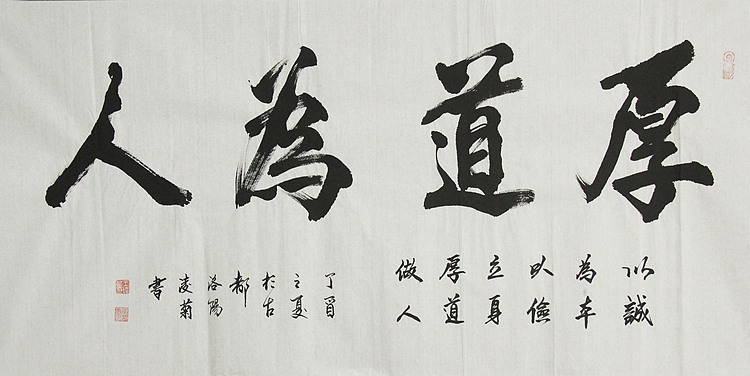 厚道為人
以誠
為本
以儉
立身
厚道
做人
丁酉
之夏
於古
都
洛陽
凌菊
書